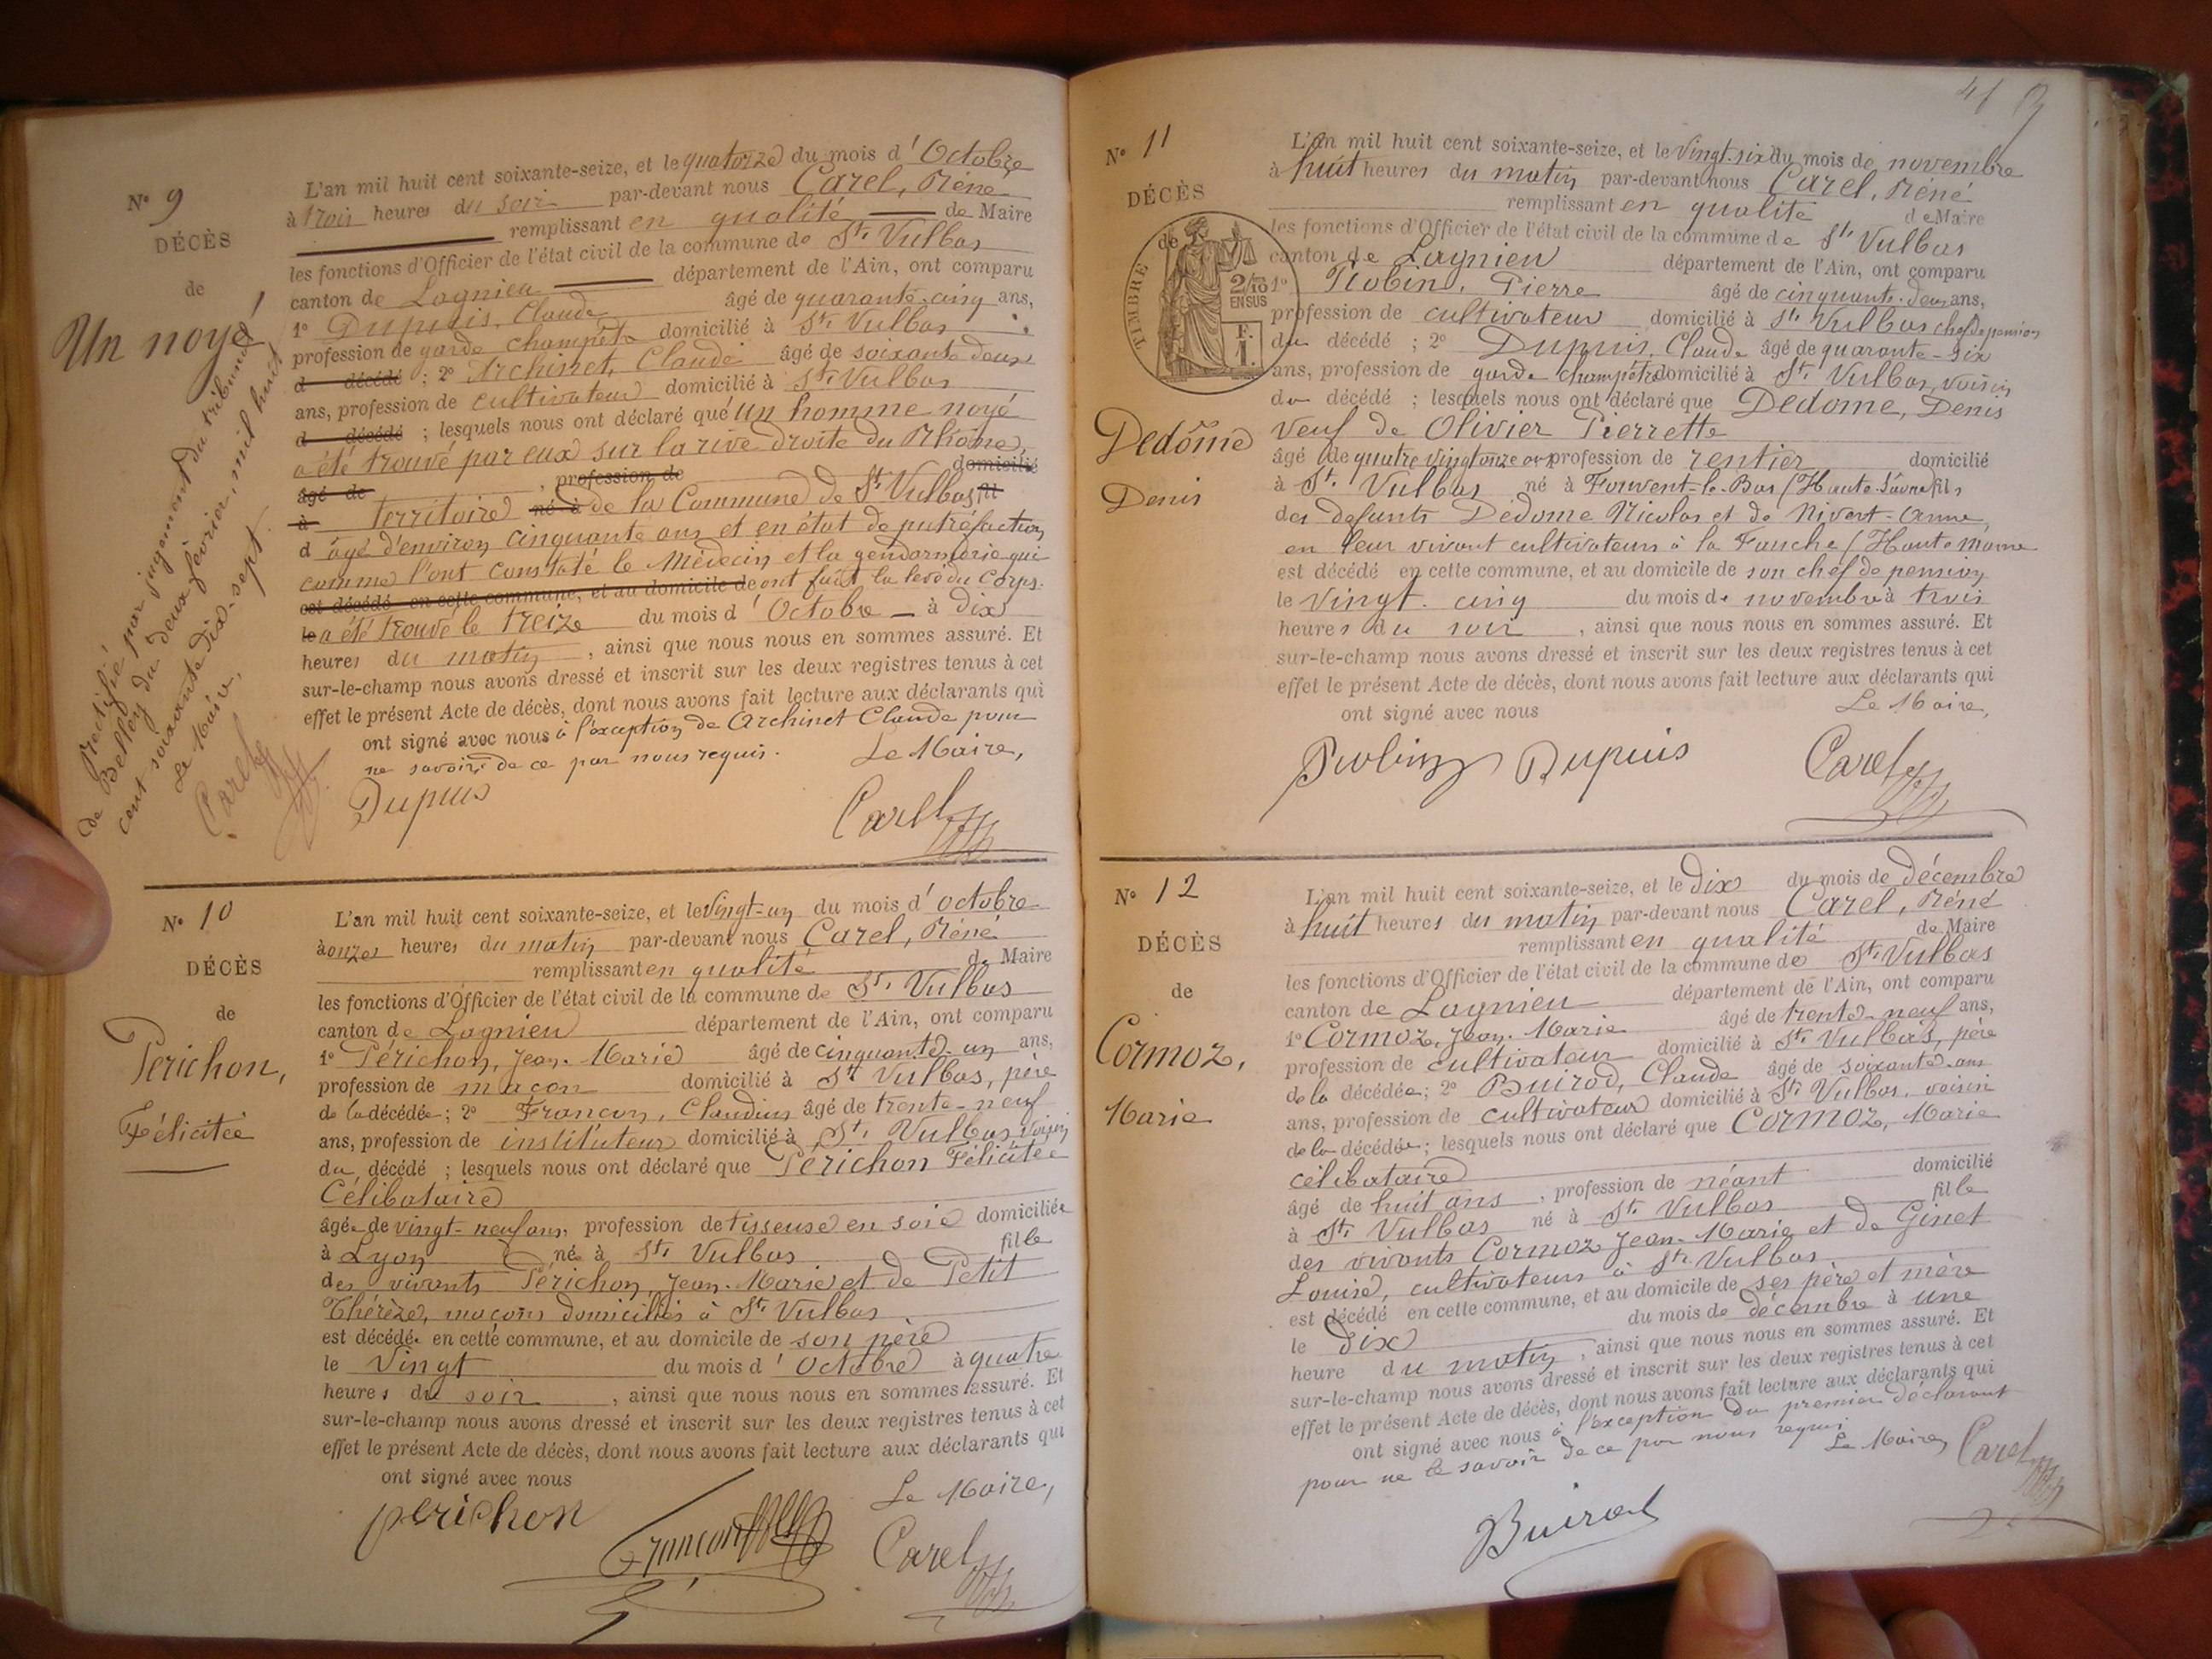 N° 9
DÉCÈS
de
Un noyé
rectifié par jugement du tribunal
de Belley du deux février, mil huit
cent soixante dix-sept.
Le Maire,
Carel
L'an mil huit cent soixante-seize, et le quatorze du mois d'Octobre
à trois heures du soir par-devant nous Carel, Réné
remplissant en qualité de Maire
les fonctions d'Officier de l'état civil de la commune de St. Vulbas
canton de Lagnieu département de l'Ain, ont comparu
1° Dupuis, Claude âgé de quarante-cinq ans,
profession de garde champêtre domicilié à St. Vulbas
d décédé ; 2° Archinet, Claude âgé de soixante deux
ans, profession de cultivateur domicilié à St. Vulbas
d décédé ; lesquels nous ont déclaré que un homme noyé
a été trouvé par eux sur la rive droite du Rhône,
âgé de , profession de domicilié
à territoire né à de la Commune de St. Vulbas, fil
d âgé d'environ cinquante ans et en état de putréfaction
comme l'ont constaté le Médecin et la gendarmerie qui
est décédé en cette commune, et au domicile de ont fait la levé du corps.
le a été trouvé le treize du mois d'Octobre à dix
heures du matin, ainsi que nous nous en sommes assuré. Et
sur-le-champ nous avons dressé et inscrit sur les deux registres tenus à cet
effet le présent Acte de décès, dont nous avons fait lecture aux déclarants qui
ont signé avec nous à l'exception de Archinet Claude pour
ne savoir de ce par nous requis. Le Maire,
Dupuis Carel
N° 10
DÉCÈS
de
Perichon,
Félicitée
L'an mil huit cent soixante-seize, et le vingt-un du mois d'octobre
à onze heures du matin par-devant nous Carel, Réné
remplissant en qualité de Maire
les fonctions d'Officier de l'état civil de la commune de St. Vulbas
canton de Lagnieu département de l'Ain, ont comparu
1° Périchon, Jean-Marie âgé de cinquante-un ans,
profession de maçon domicilié à St. Vulbas, père
de la décédée ; 2° Francon, Claudius âgé de trente-neuf
ans, profession de instituteur domicilié à St. Vulbas, voisin
du décédé ; lesquels nous ont déclaré que Périchon Félicitée
Célibataire
âgée de vingt-neuf ans, profession de tisseuse en soie domiciliée
à Lyon née à St. Vulbas fille
des vivants Périchon, Jean-Marie et de Petit
Thérèze, maçons domiciliés à St. Vulbas
est décédée en cette commune, et au domicile de son père
le Vingt du mois d'Octobre à quatre
heures du soir, ainsi que nous nous en sommes assuré. Et
sur-le-champ nous avons dressé et inscrit sur les deux registres tenus à cet
effet le présent Acte de décès, dont nous avons fait lecture aux déclarants qui
ont signé avec nous
Le Maire,
perichon Francon Carel
41
N° 11
DÉCÈS
de
TIMBRE
2/10
EN SUS
F.
1.
Dedôme
Denis
L'an mil huit cent soixante-seize, et le vingt-six du mois de novembre
à huit heures du matin par-devant nous Carel, Réné
remplissant en qualité de Maire
les fonctions d'Officier de l'état civil de la commune de St. Vulbas
canton de Lagnieu département de l'Ain, ont comparu
1° Robin, Pierre âgé de cinquante-deux ans,
profession de cultivateur domicilié à St. Vulbas chef de pension
du décédé ; 2° Dupuis, Claude âgé de quarante-six
ans, profession de garde champêtre domicilié à St. Vulbas, voisin
du décédé ; lesquels nous ont déclaré que Dedome, Denis
veuf de Olivier Pierrette
âgé de quatre vingt onze ans profession de rentier domicilié
à St. Vulbas né à Fouvent-le-Bas (Haute-Saône) fils
des defunts Dedome Nicolas et de Nivert-Anne,
en leur vivant cultivateurs à la Fauche (Haute Marne
est décédé en cette commune, et au domicile de son chef de pension
le vingt-cinq du mois de novembre à trois
heures du soir, ainsi que nous nous en sommes assuré. Et
sur-le-champ nous avons dressé et inscrit sur les deux registres tenus à cet
effet le présent Acte de décès, dont nous avons fait lecture aux déclarants qui
ont signé avec nous Le Maire,
Robin Dupuis Carel
N° 12
DÉCÈS
de
Cormoz,
Marie
L'an mil huit cent soixante-seize, et le dix du mois de décembre
à huit heures du matin par-devant nous Carel, Réné
remplissant en qualité de Maire
les fonctions d'Officier de l'état civil de la commune de St. Vulbas
canton de Lagnieu département de l'Ain, ont comparu
1° Cormoz, Jean-Marie âgé de trente-neuf ans,
profession de cultivateur domicilié à St. Vulbas, père
de la décédée ; 2° Buirod, Claude âgé de soixante ans
ans, profession de cultivateur domicilié à St. Vulbas, voisin
de la décédée ; lesquels nous ont déclaré que Cormoz, Marie
célibataire
âgé de huit ans, profession de néant domicilié
à St. Vulbas né à St. Vulbas fille
des vivants Cormoz Jean-Marie et de Ginet
Louise, cultivateurs à St. Vulbas
est décédé en cette commune, et au domicile de ses père et mère
le dix du mois de décembre à une
heure du matin, ainsi que nous nous en sommes assuré. Et
sur-le-champ nous avons dressé et inscrit sur les deux registres tenus à cet
effet le présent Acte de décès, dont nous avons fait lecture aux déclarants qui
ont signé avec nous à l'exception du premier déclarant
pour ne le savoir de ce par nous requis
Le Maire Carel
Buirod